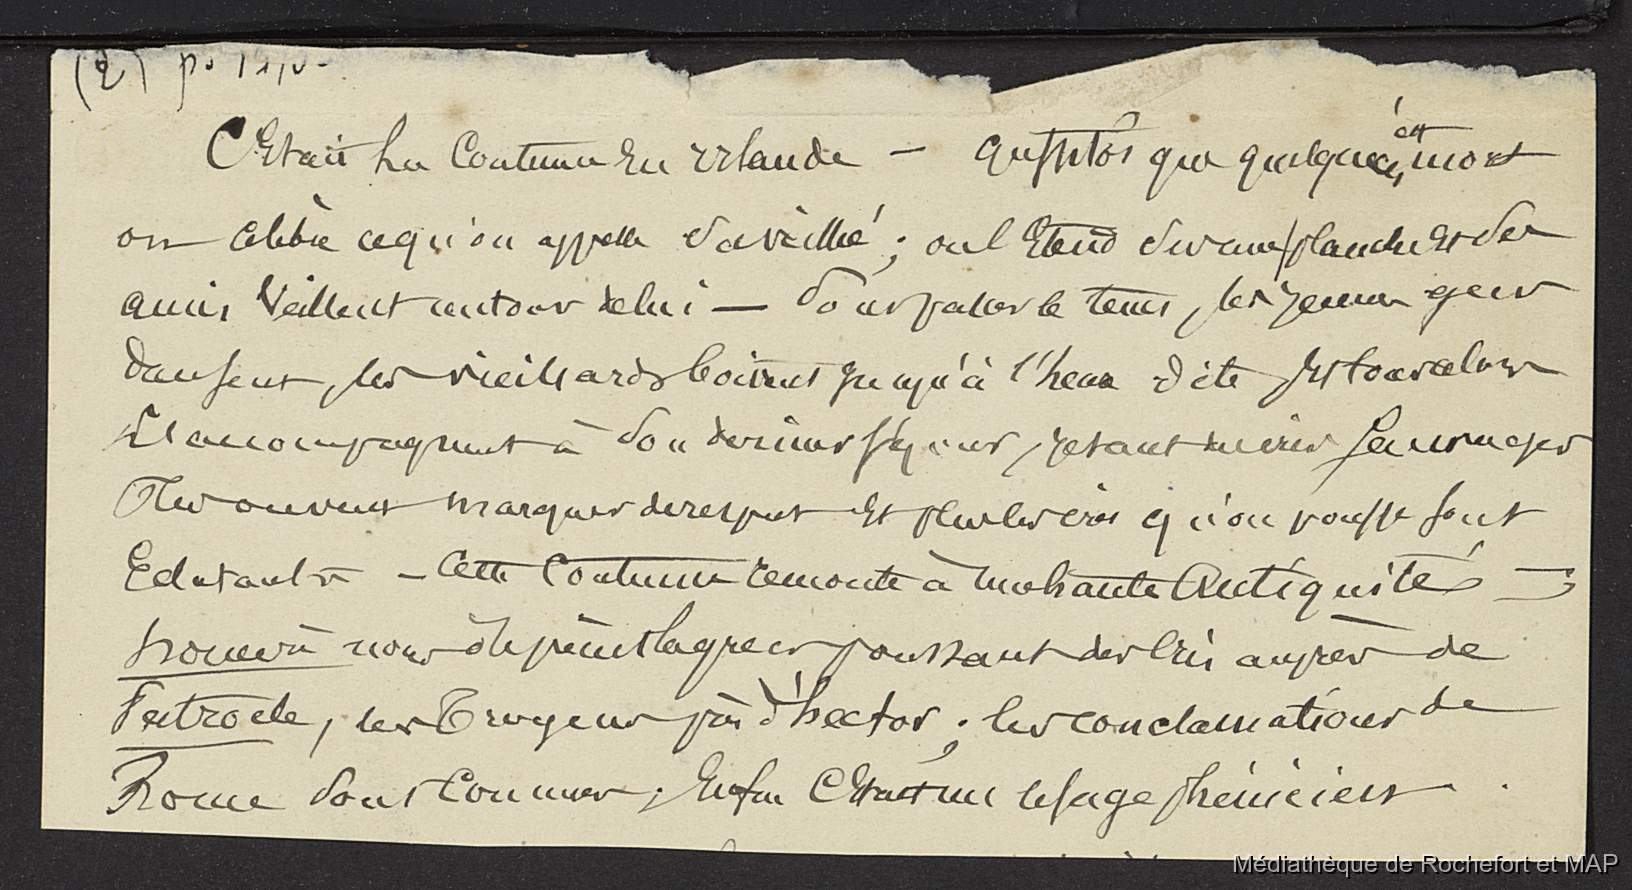 (2) p.
C'Etait la Coutume En irlande — aussitôt que quelqu'un était mort
on célèbre ce qu'on appelle sa veillée; on l'Etend sur une planche et des
amis Veillent autour de lui — Pour passer le tems, les jeunes gens
dansent, les vieillards boivent jusqu'à l'heure
L'accompagnent à Son dernier Séjour,
Ils ouvent marques de respect Et plus les cris qu'on pousse sont
Eclatants — Cette Coutume remonte à une haute Antiquité —
homère nous dépeint les grecs poussant des Cris auprès de
Patrocle, les Troyens près d'hector; les conclamations de
Rome Sont Connues; Enfin C'Etait un Usage phénicien.
Médiathèque de Rochefort et MAP